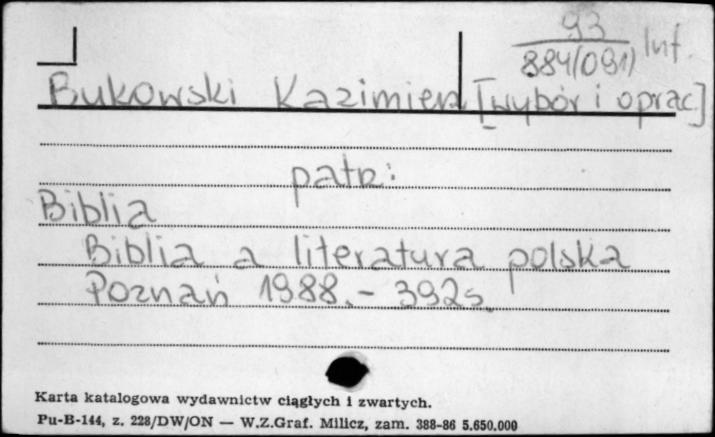 93
884(091) Inf.
Bukowski Kazimierz [wybór i oprac]
patrz:
Biblia
Biblia a literatura polska
Poznań 1988. – 392s.
Karta katalogowa wydawnictw ciągłych i zwartych.
Pu-B-144, z. 228/DW/ON — W.Z.Graf. Milicz, zam. 388-86 5.650.000